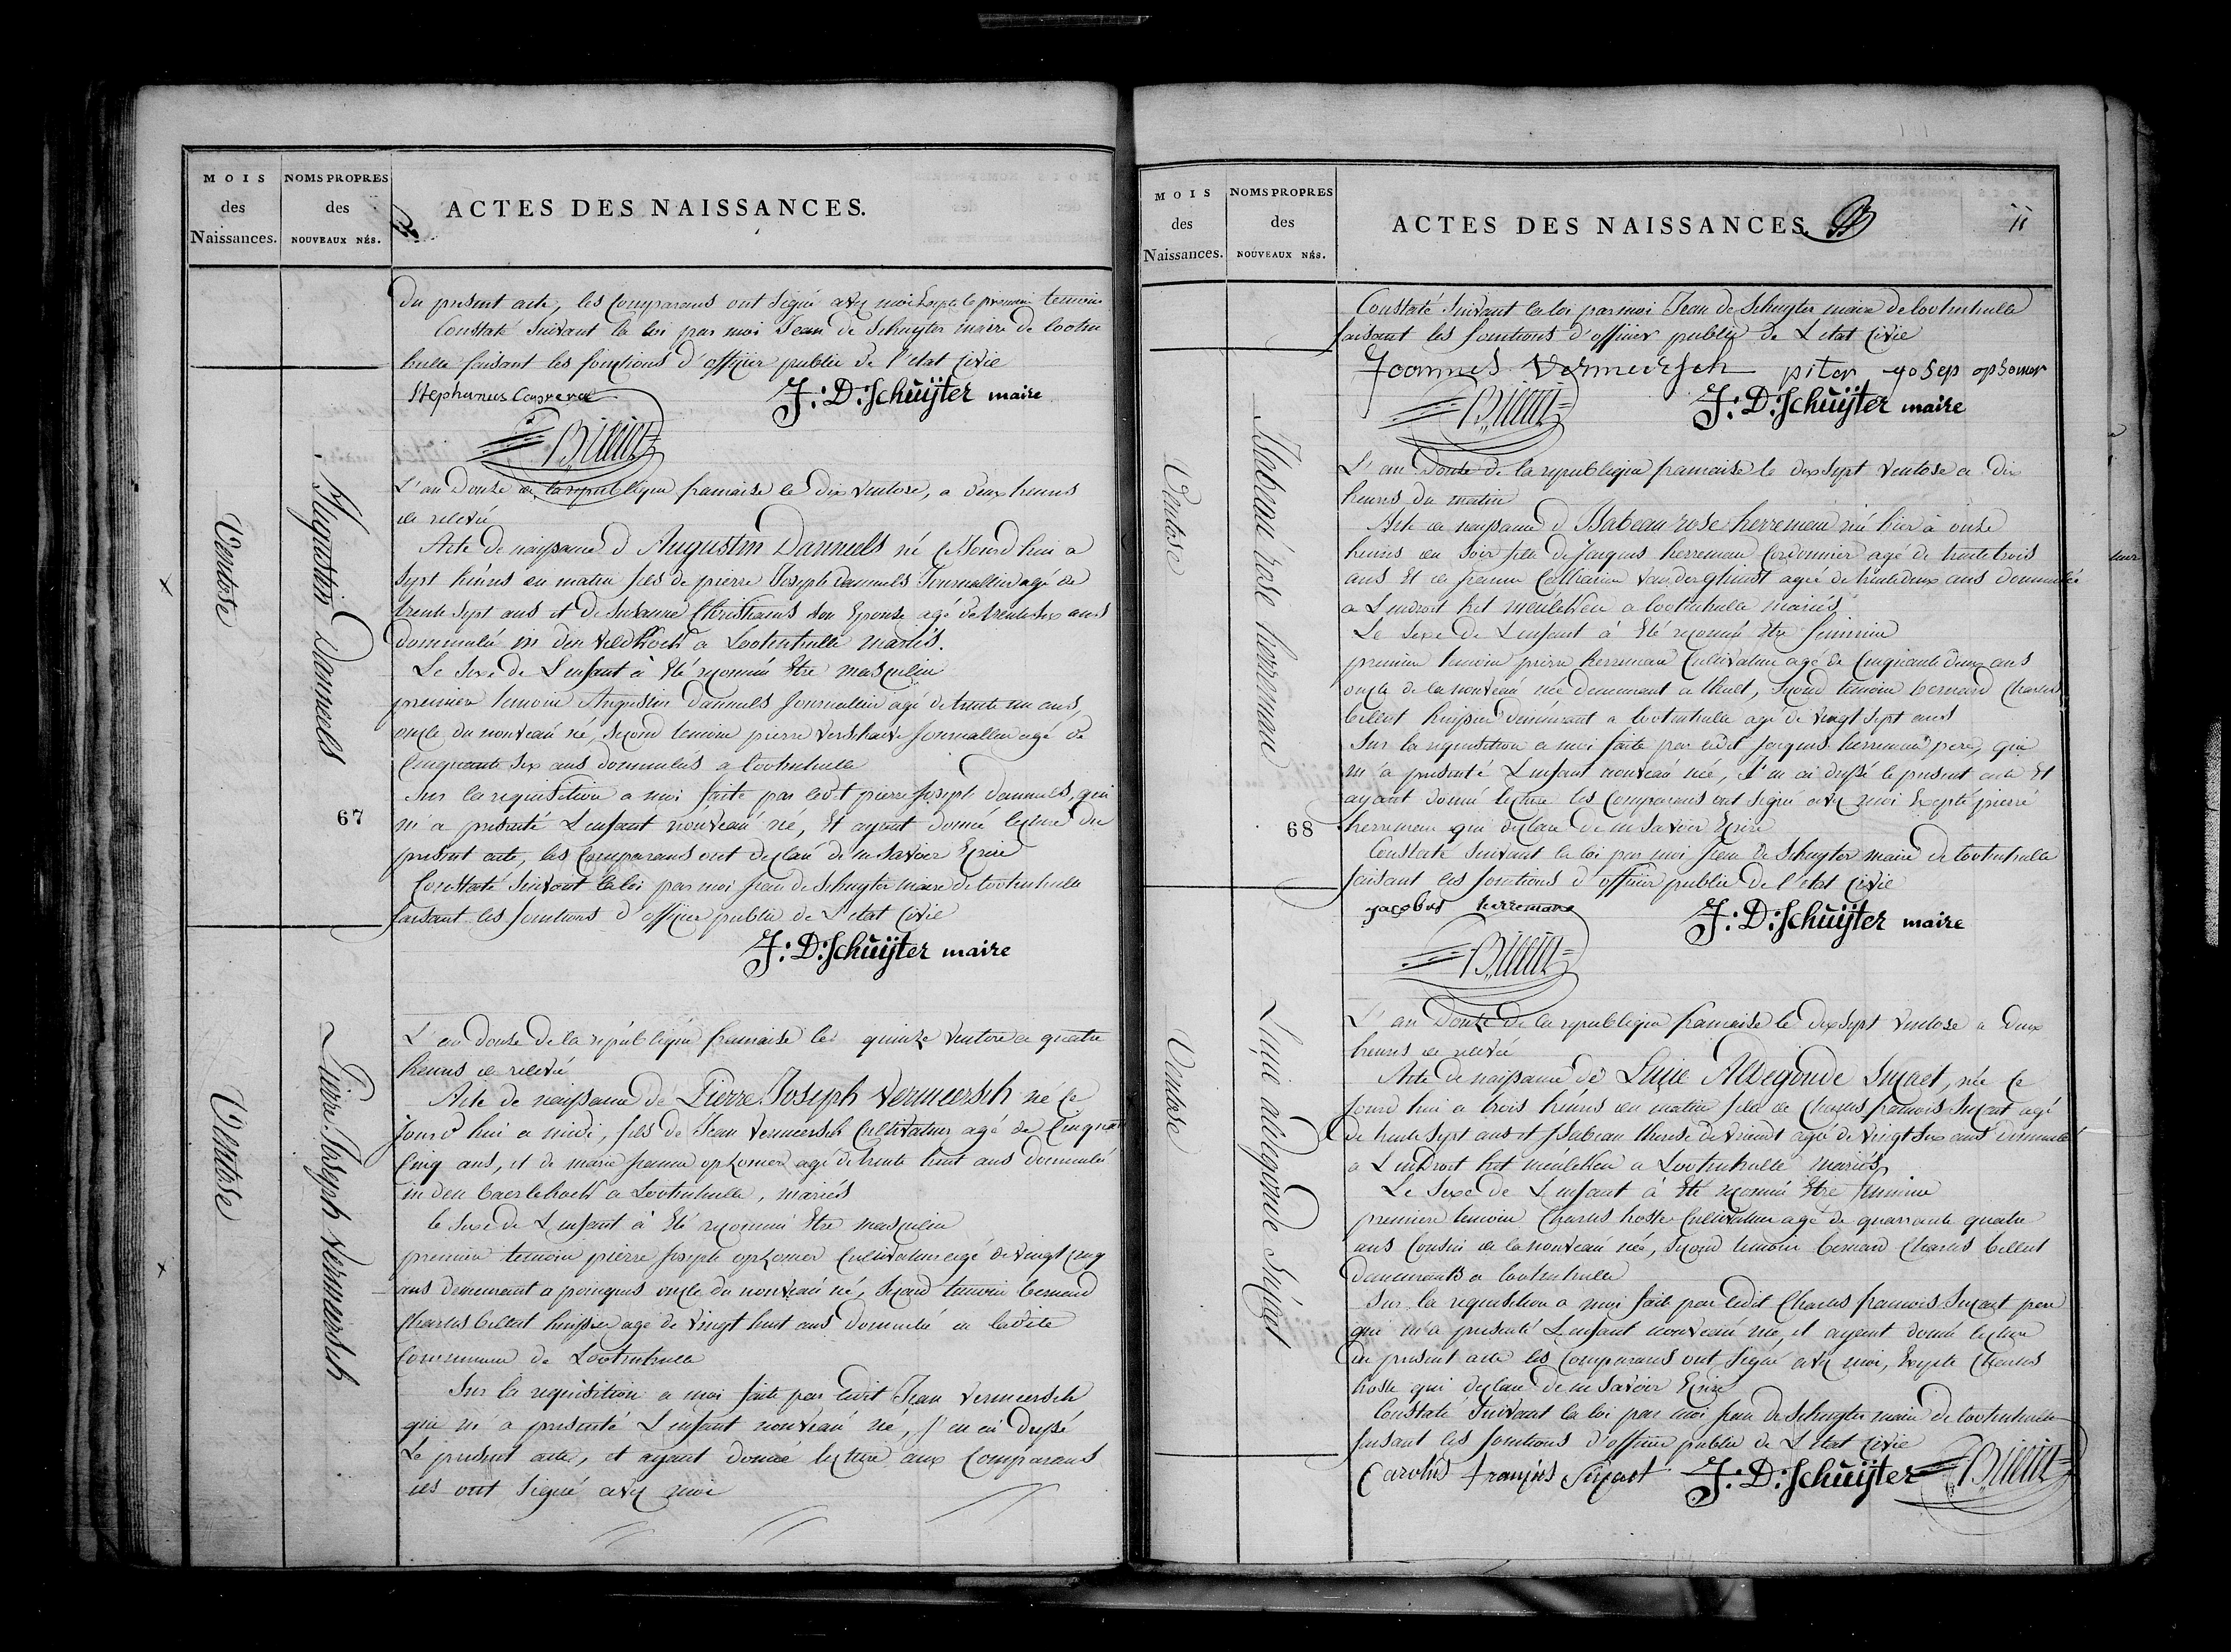 MOIS
des
Naissances.
NOMS PROPRES
des
NOUVEAUX NÉS.
ACTES DES NAISSANCES.
du present acte, les Comparans ont signé avec moi Excepte le premier temoin
Constaté suivant la loi par moi Jean de Schuyter maire de looten
hulle faisant les fonctions d'officier public de l'etat Civie
Stephanus
J: D: Schuijter maire
Ventose
Augustin Danneels
L'an Douze de la republique francaise le dix Ventose, a deux heures
de relevée
Acte de naissance d'Augustin Danneels né Cejourd'hui a
sept heures du matin fils de pierre Joseph danneels Journallier agé de
trente sept ans et de Susanne Christiaens son Epouse agé de trente six ans
domicilié in den veldhoek a Lootenhulle mariés.
Le Sexe de L'enfant à Eté reconnu Etre masculin
premier temoin Augustin danneels Journallier agé de trente un ans,
oncle du nouveau né, second temoin pierre Verschaeve Journallier agé de
Cinquante six ans domiciliés a lootenhulle
Sur la requisition a moi faite par ledit pierre Joseph danneels, qui
67
m'a presenté L'enfant nouveau né, Et ayant donné lecture du
present acte, les Comparans ont declaré de ne savoir Ecrire
Constaté suivant la loi par moi Jean de Schuyter maire de lootenhulle
faisant les fonctions d'officier public de L'etat Civie
J: D: Schuijter maire
Ventose
Pierre Joseph Vermeersch
L'an douze de la république francaise le quinze Ventose a quatre
heures de relevée
Acte de naissance de Pierre Joseph Vermeersch né Ce
jourd'hui a midi, fils de Jean Vermeersch Cultivateur agé de Cinquante
Cinq ans, et de marie jeanne opsomer agé de trente huit ans domicilié
in den baerlehoek a Lootenhulle, mariés
le Sexe de L'enfant à Eté reconnu Etre masculin
premier temoin pierre Joseph opsomer Cultivateur agé de vingt cinq
ans demeurant a poucques oncle du nouveau né, Second temoin bernard
Charles billiet huissier agé de vingt huit ans domicilié en ladite
Commune de Lootenhulle
Sur la requisition a moi faite par ledit Jean Vermeersch
qui m'a presenté L'enfant nouveau né, J'en ai dressé
Le present acte, et ayant donné lecture aux Comparans
ils ont signé avec moi
MOIS
des
Naissances.
NOMS PROPRES
des
NOUVEAUX NÉS.
ACTES DES NAISSANCES.
11
Constaté suivant la loi par moi Jean de Schuyter maire de lootenhulle
faisant les fonctions d'officier public de L'etat Civie
Joannes Vermeersch piter yosep opsomer
J: D: Schuijter maire
Ventose
Isabeau rose herreman
L'an Douze de la republique francaise le dix sept Ventose a dix
heures du matin
Acte de naissance d'Isabeau rose herreman née hier à onze
heures du soir fille de Jacques herreman Cordonnier agé de trente trois
ans Et de jeanne Catherine Van der ghinst agée de trente deux ans domicilié
a L'endroit het meulekeu a lootenhulle mariés
Le Sexe de L'enfant à Eté reconnu Etre feminin
premier temoin pierre herreman Cultivateur agé de Cinquante deux ans
oncle de la nouveau née demeurant a thielt, second temoin bernard Charles
billiet huissier demeurant a lootenhulle agé de vingt sept ans
Sur la requisition a moi faite par ledit Jacques herreman pere, qui
m'a presenté L'enfant nouveau née, J'en ai dressé le present acte Et
ayant donné lecture les Comparans ont signé avec moi Excepté pierre
68
herreman qui declare de ne savoir Ecrire
Constaté suivant la loi par moi Jean de Schuyter maire de lootenhulle
faisant les fonctions d'officier public de l'etat Civie
jacobus herremans
J: D: Schuijter maire
Ventose
Lucie aldegonde Suçaet
L'an Douze de la republique francaise le dix sept Ventose a deux
heures de relevée
Acte de naissance de Lucie Aldegonde Suçaet, née Ce
jourd'hui a trois heures du matin fille de Charles francois Suçaet agé
de trente sept ans et Isabeau therese de Vriendt agée de vingt six ans domicilié
a L'endroit het meulekeu a Lootenhulle mariés
Le Sexe de L'enfant à Eté reconnu Etre feminin
premier temoin Charles hoste Cultivateur agé de quarante quatre
ans Cousin de la nouveau née, second temoin bernard Charles billiet
demeurants a lootenhulle
Sur la requisition a moi faite par ledit Charles francois Suçaet pere
qui m'a presenté L'enfant nouveau née, et ayant donné lecture
du present acte les Comparans ont signé avec moi, Excepte Charles
hoste qui declare de ne savoir Ecrire
Constaté suivant la loi par moi Jean de Schuyter maire de lootenhulle
faisant les fonctions d'officier public de L'etat Civie
Carolus françies Suçaet J: D: Schuijter